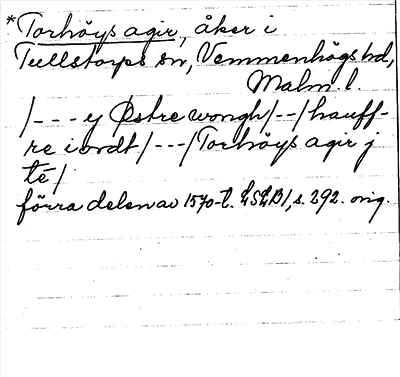 *Torhöys agir, åker i
Tullstorps sn, Vemmenhögs hd,
Malm. l.
/--- y Østre wongh/--/hauff-
re iordt/---/Torhöys agir j
té/
förra delen av 1570-t. LSLB1, s. 292. orig.